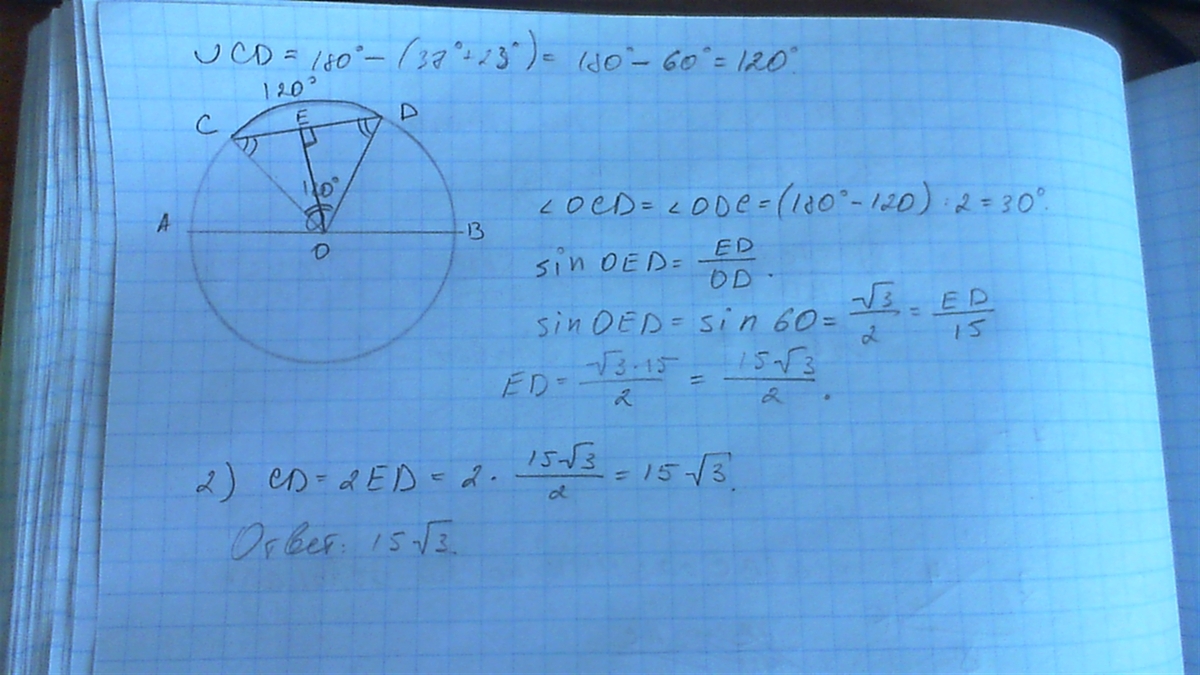 ∪CD = 180° - (37° + 23°) = 180° - 60° = 120°.
120°
C E D
120°
A O B
∠OCD = ∠ODC = (180° - 120) : 2 = 30°.
sin OED = ED/OD.
sin OED = sin 60 = √3/2 = ED/15
ED = √3·15/2 = 15√3/2.
2) CD = 2ED = 2 · 15√3/2 = 15√3.
Ответ: 15√3.